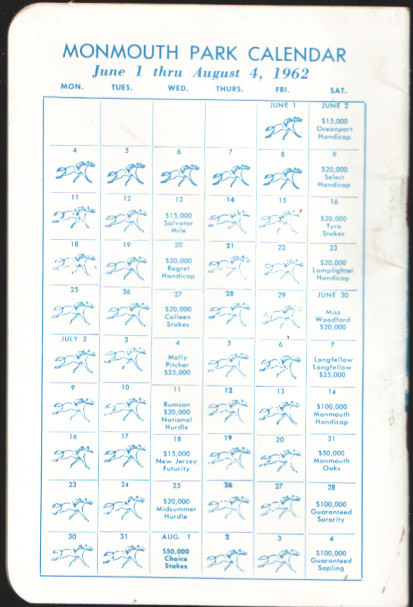 MONMOUTH PARK CALENDAR
June 1 thru August 4, 1962
MON. TUES. WED. THURS. FRI. SAT.
JUNE 1 JUNE 2
$15,000
Oceanport
Handicap
4 5 6 7 8 9
$20,000
Select
Handicap
11 12 13 14 15 16
$15,000
Salvator
Mile
$20,000
Tyro
Stakes
18 19 20 21 22 23
$20,000
Regret
Handicap
$20,000
Lamplighter
Handicap
25 26 27 28 29 JUNE 30
$20,000
Colleen
Stakes
Miss
Woodford
$20,000
JULY 2 3 4 5 6 7
Molly
Pitcher
$25,000
Longfellow
Longfellow
$25,000
9 10 11 12 13 14
Rumson
$20,000
National
Hurdle
$100,000
Monmouth
Handicap
16 17 18 19 20 21
$15,000
New Jersey
Futurity
$50,000
Monmouth
Oaks
23 24 25 26 27 28
$20,000
Midsummer
Hurdle
$100,000
Guaranteed
Sorority
30 31 AUG. 1 2 3 4
$50,000
Choice
Stakes
$100,000
Guaranteed
Sapling